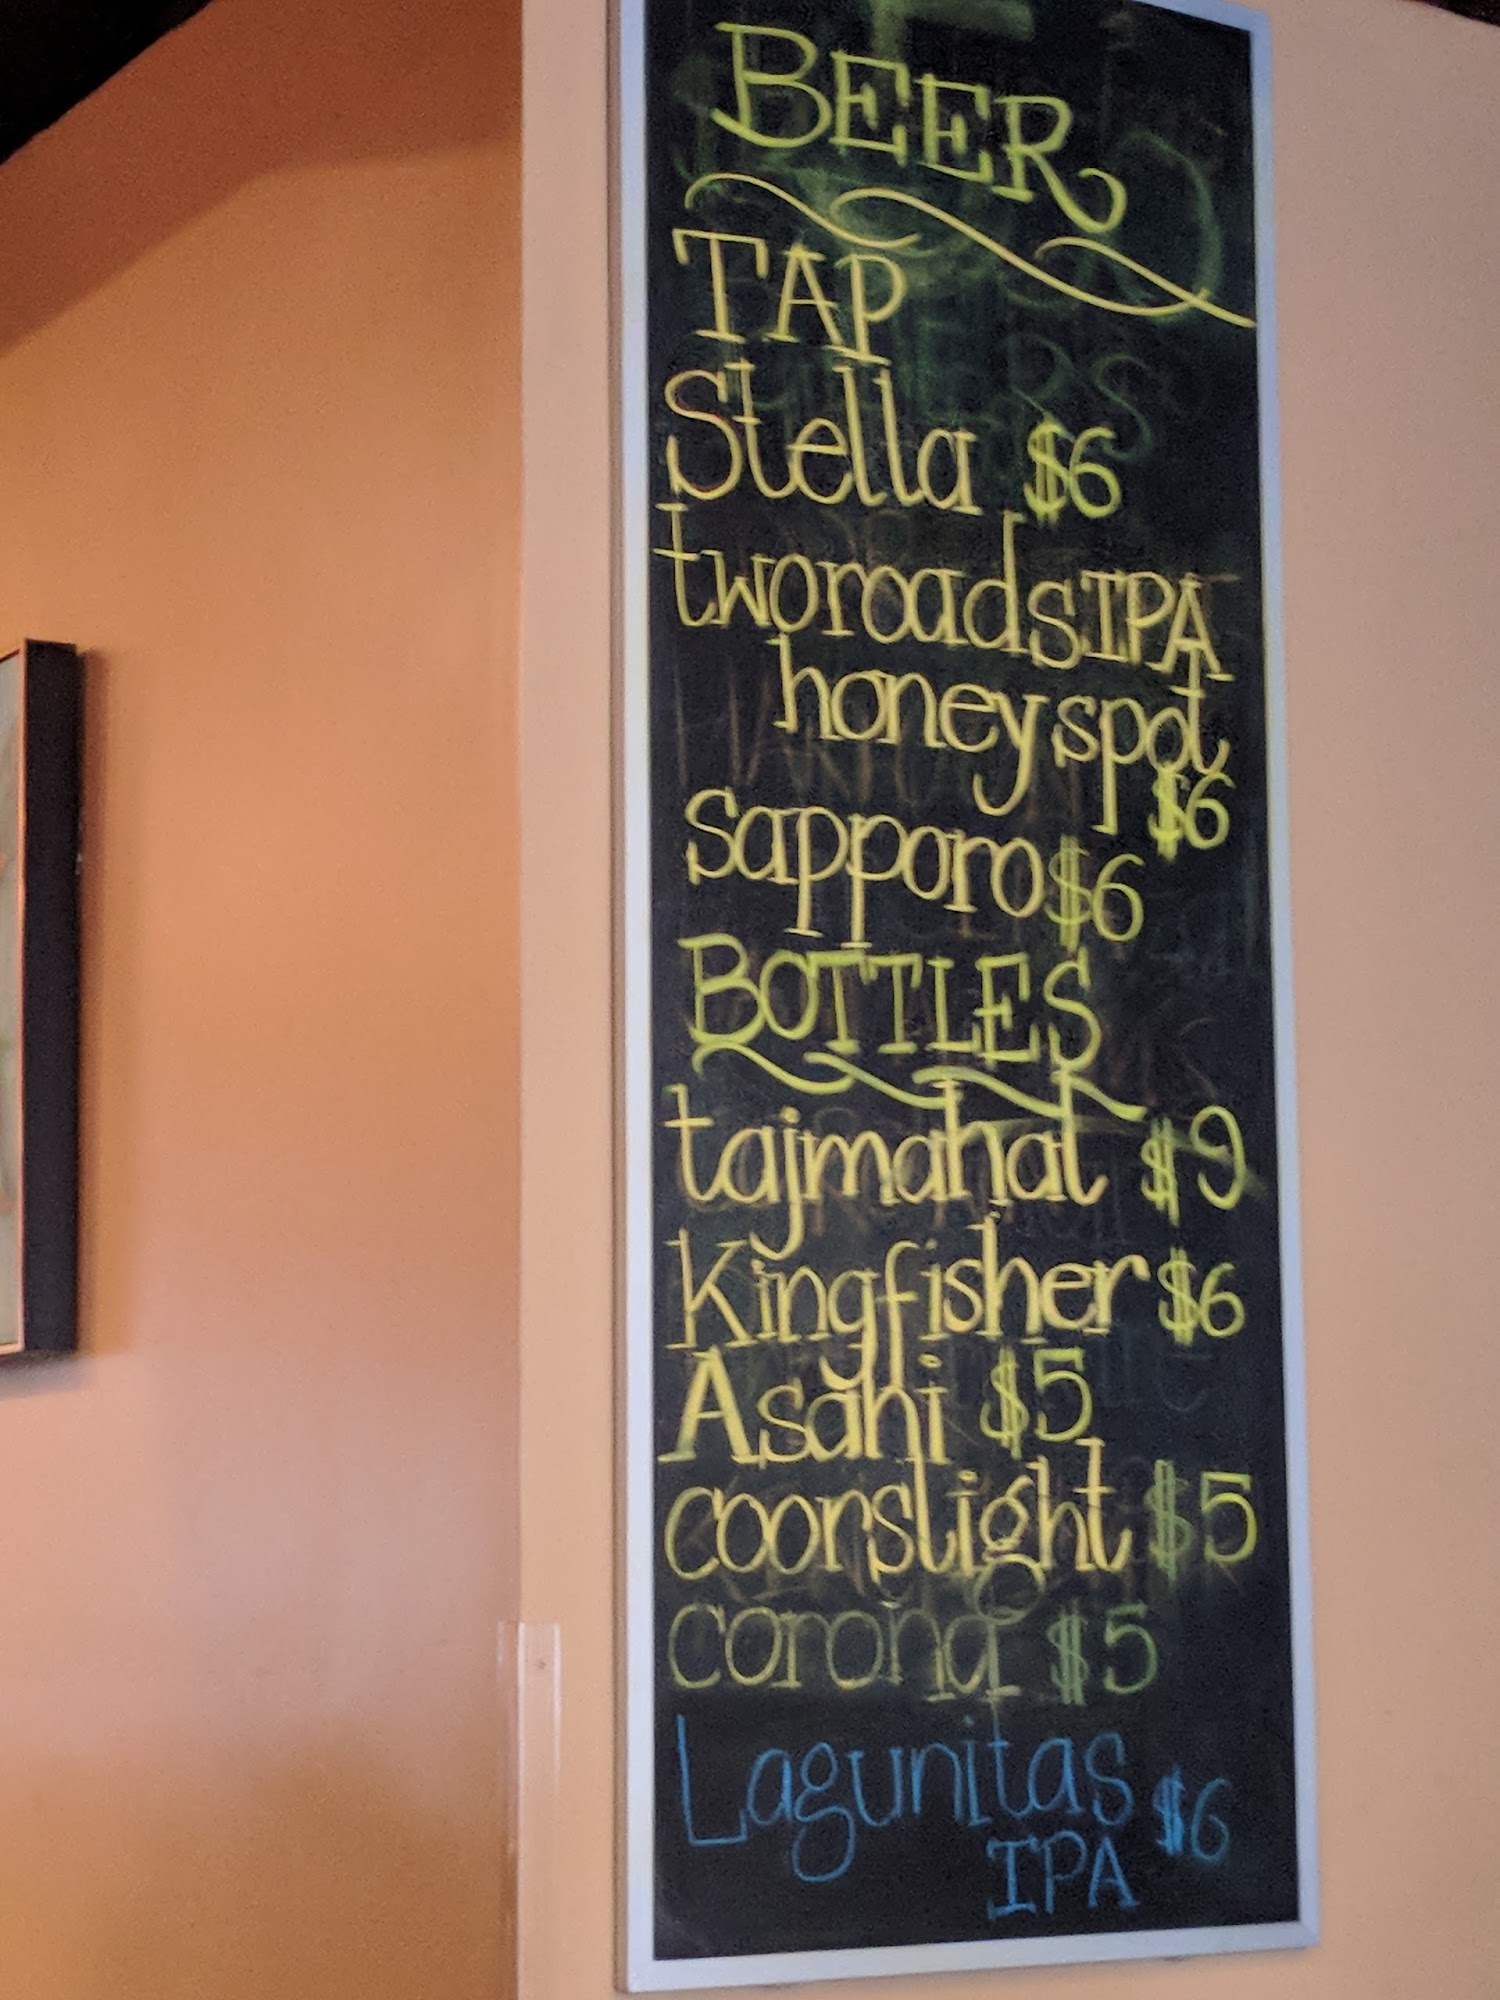 BEER
TAP
Stella $6
tworoadsIPA
honeyspot
$6
sapporo $6
BOTTLES
tajmahal $9
Kingfisher $6
Asahi $5
coorslight $5
corona $5
Lagunitas $6
IPA